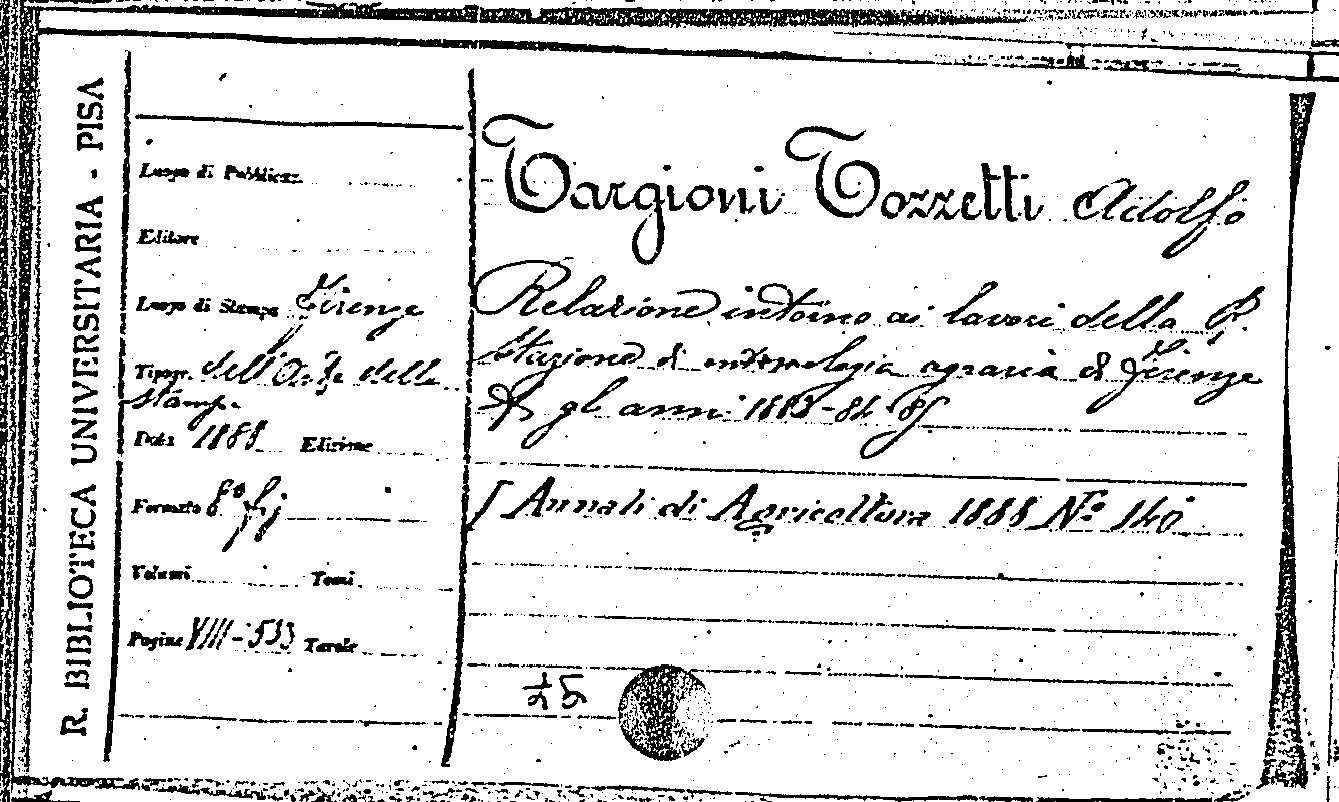 R. BIBLIOTECA UNIVERSITARIA - PISA
Luogo di Pubblicaz.
Editore
Luogo di Stampa Firenze
Tipogr. dell'Arte della
Stamp.
Data 1888 Edizione
Formato 8º
Volumi Tomi
Pagine VIII-533 Tavole
Targioni Tozzetti Adolfo
Relazione intorno ai lavori della R.
Stazione di entomologia agraria di Firenze
gli anni 1883-84-85
[Annali di Agricoltura 1888 Nº 140